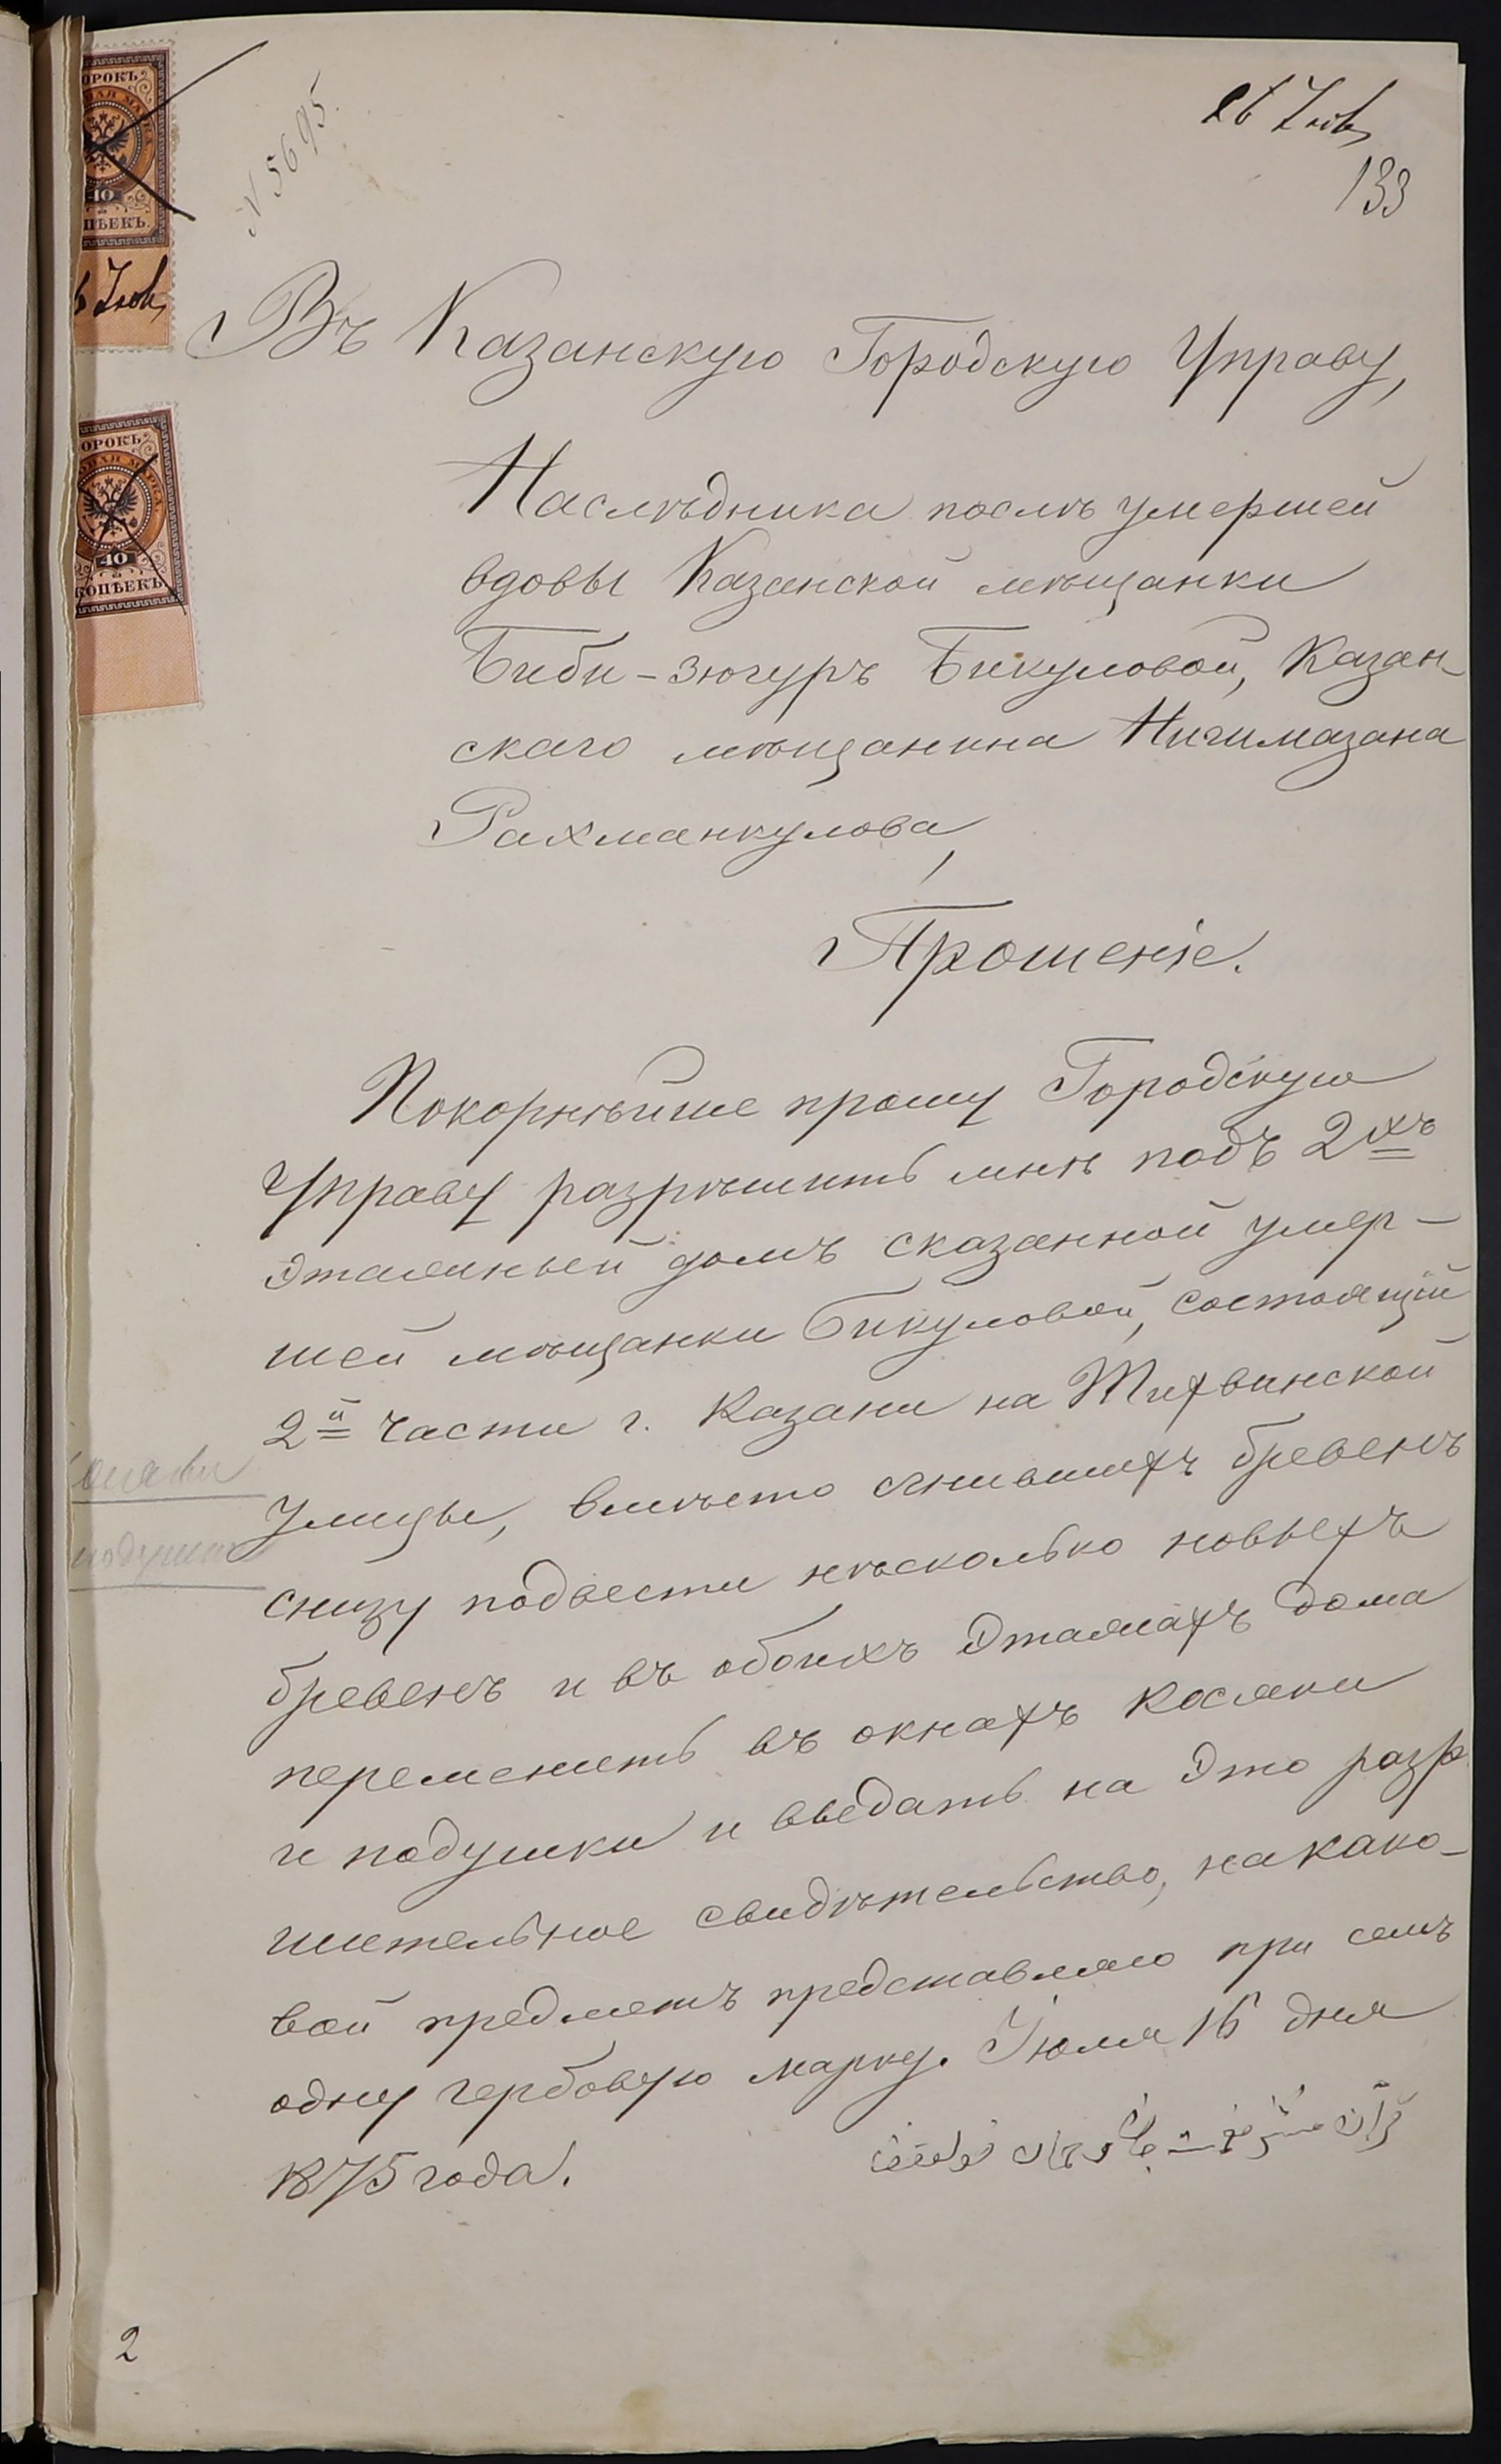 № 5695.
133
ОРОКЪ
40
ПѢЕКЪ
ОРОКЪ
40
КОПѢЕКЪ
Въ Казанскую Городскую Управу,
Наслѣдника послѣ умершей
вдовы Казанской мѣщанки
Биби-зюгуръ Бикуловой, Казан-
скаго мѣщанина Нигимазана
Рахманкулова,
Прошеніе.
Покорнѣйше прошу Городскую
Управу разрѣшить мнѣ подъ 2хъ
этажный домъ сказанной умер-
шей мѣщанки Бикуловой, состоящій
2й части г. Казани на Тихвинской
улицы, вмѣсто сгнившихъ бревенъ
снизу подвести нѣсколько новыхъ
бревенъ и въ обоихъ этажахъ дома
переменить въ окнахъ косяки
и подушки и выдать на это разр
шительное свидѣтельство, на како-
вой предметъ представляю при семъ
одну гербовую марку. Іюля 16 дня
1875 года.
2